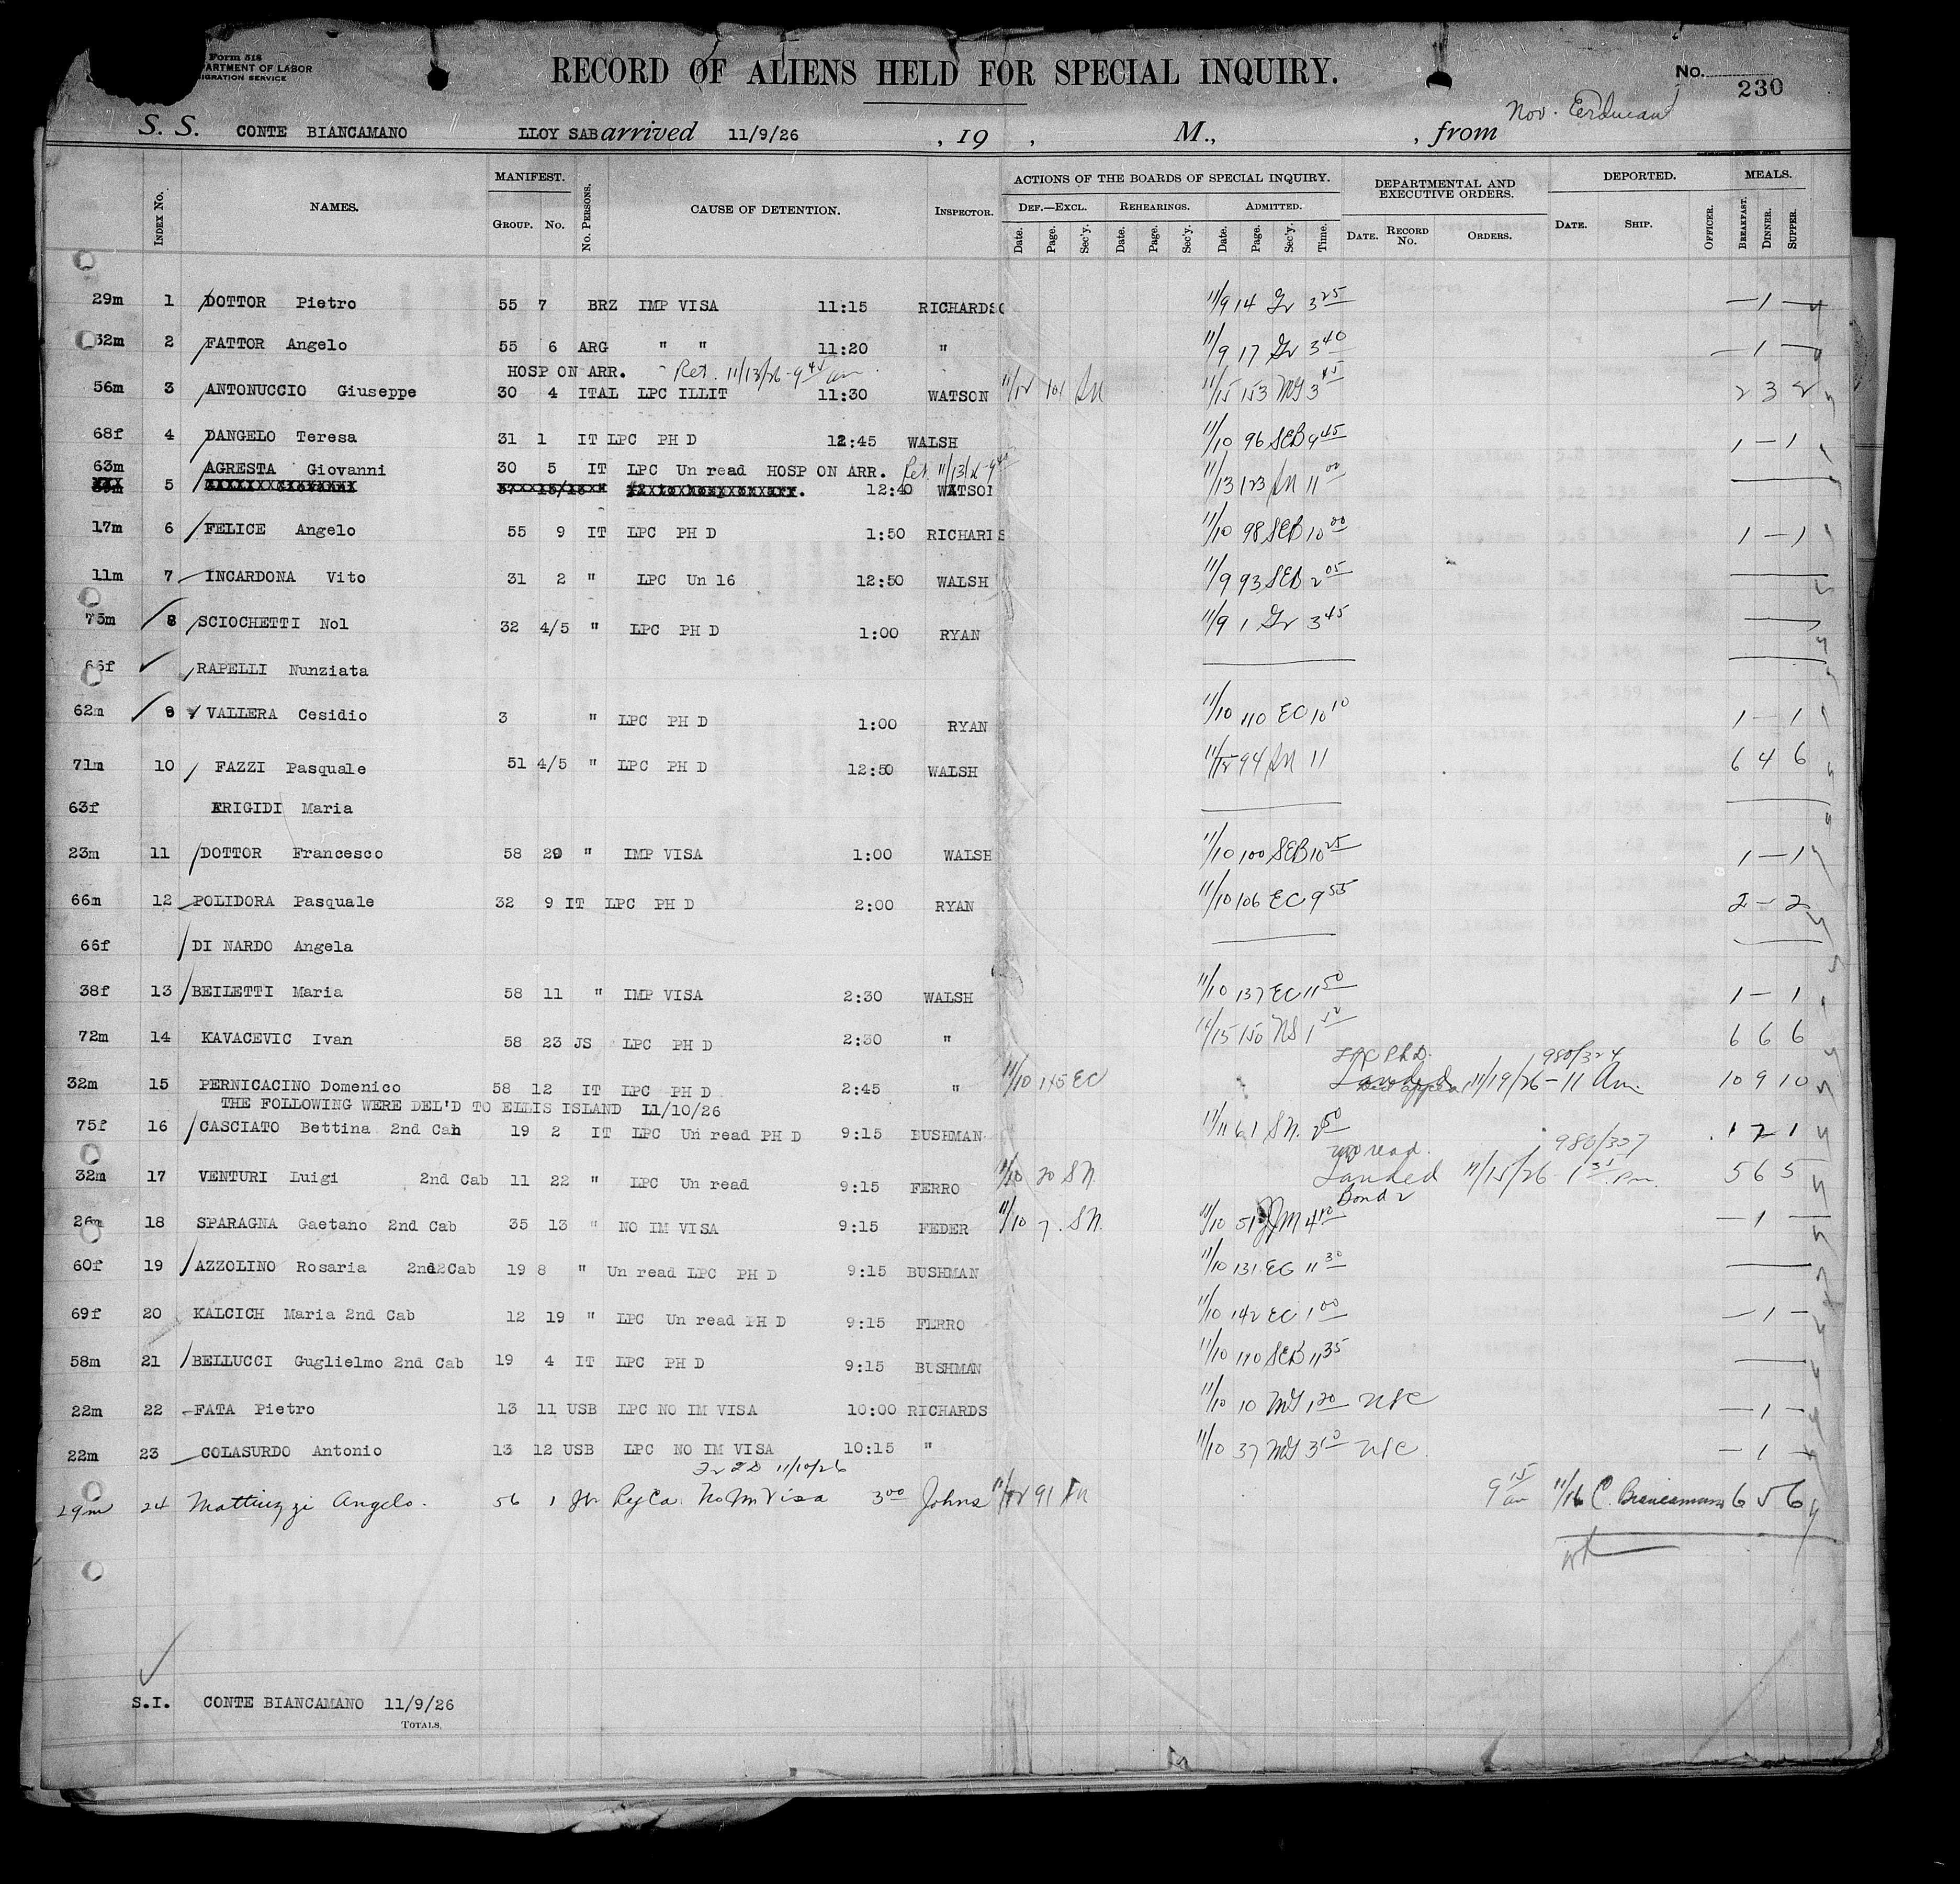 Form 518
PARTMENT OF LABOR
IGRATION SERVICE
RECORD OF ALIENS HELD FOR SPECIAL INQUIRY.
No. 230
S. S. CONTE BIANCAMANO LLOY SAB arrived 11/9/26 , 19 , M., , from Nov.
INDEX NO. NAMES. MANIFEST. GROUP. NO. NO. PERSONS. CAUSE OF DETENTION. INSPECTOR. ACTIONS OF THE BOARDS OF SPECIAL INQUIRY. DEPARTMENTAL AND EXECUTIVE ORDERS. DEPORTED. MEALS.
DEF.—EXCL. REHEARINGS. ADMITTED.
Date. Page. Sec'y. Date. Page. Sec'y. Date. Page. Sec'y. Time. DATE. RECORD NO. ORDERS. DATE. SHIP. OFFICER. BREAKFAST. DINNER. SUPPER.
29m 1 DOTTOR Pietro 55 7 BRZ IMP VISA 11:15 RICHARDSO 11/9 14 Gr 3 25 — 1 —
32m 2 FATTOR Angelo 55 6 ARG " " 11:20 " 11/9 17 Gr 3 40 — 1 —
HOSP ON ARR. Ret. 11/13/26 - 9 45 am
56m 3 ANTONUCCIO Giuseppe 30 4 ITAL LPC ILLIT 11:30 WATSON 11/12 101 11/15 153 3 45 2 3 2
68f 4 DANGELO Teresa 31 1 IT LPC PH D 12:45 WALSH 11/10 96 SEB 9 45 1 — 1
63m AGRESTA Giovanni 30 5 IT LPC Un read HOSP ON ARR. Ret. 11/13/26
5 12:40 WATSON 11/13 123 11 00
17m 6 FELICE Angelo 55 9 IT LPC PH D 1:50 RICHARDS 11/10 98 SEB 10 00 1 — 1
11m 7 INCARDONA Vito 31 2 " LPC Un 16 12:50 WALSH 11/9 93 SEB 2 05
73m 8 SCIOCHETTI Nol 32 4/5 " LPC PH D 1:00 RYAN 11/9 1 Gr 3 45
66f RAPELLI Nunziata
62m 9 VALLERA Cesidio 3 " LPC PH D 1:00 RYAN 11/10 110 EC 10 10 1 — 1
71m 10 FAZZI Pasquale 51 4/5 " LPC PH D 12:50 WALSH 94 11 6 4 6
63f FRIGIDI Maria
23m 11 DOTTOR Francesco 58 29 " IMP VISA 1:00 WALSH 11/10 100 SEB 10 25 1 — 1
66m 12 POLIDORA Pasquale 32 9 IT LPC PH D 2:00 RYAN 11/10 106 EC 9 55 2 — 2
66f DI NARDO Angela
38f 13 BEILETTI Maria 58 11 " IMP VISA 2:30 WALSH 11/10 137 EC 11 50 1 — 1
72m 14 KAVACEVIC Ivan 58 23 JS LPC PH D 2:30 " 11/15 150 6 6 6
LPC Ph D. 980/324
32m 15 PERNICACINO Domenico 58 12 IT LPC PH D 2:45 " 11/10 145 EC 11/19/26 - 11 Am. 10 9 10
THE FOLLOWING WERE DEL'D TO ELLIS ISLAND 11/10/26
75f 16 CASCIATO Bettina 2nd Cab 19 2 IT LPC Un read PH D 9:15 BUSHMAN 11/11 61 SN. 2 50 1 2 1
un read. 980/327
32m 17 VENTURI Luigi 2nd Cab 11 22 " LPC Un read 9:15 FERRO 11/10 20 SN. Landed 11/15/26 - 1 35 Pm. 5 6 5
Bond
26m 18 SPARAGNA Gaetano 2nd Cab 35 13 " NO IM VISA 9:15 FEDER 11/10 7. SN. 11/10 51 4 10 — 1 —
60f 19 AZZOLINO Rosaria 2nd Cab 19 8 " Un read LPC PH D 9:15 BUSHMAN 11/10 131 EC 11 30
69f 20 KALCICH Maria 2nd Cab 12 19 " LPC Un read PH D 9:15 FERRO 11/10 142 EC 1 00 — 1 —
58m 21 BELLUCCI Guglielmo 2nd Cab 19 4 IT LPC PH D 9:15 BUSHMAN 11/10 110 SEB 11 35
22m 22 FATA Pietro 13 11 USB LPC NO IM VISA 10:00 RICHARDS 11/10 10 1 20 — 1 —
22m 23 COLASURDO Antonio 13 12 USB LPC NO IM VISA 10:15 " 11/10 37 3 10 — 1 —
11/10/26
29m 24 Mattiuzzi Angelo. 56 1 No Im Visa 3 00 Johns 91 9 15 am 11/16 C. Biancamano 6 5 6
S.I. CONTE BIANCAMANO 11/9/26
TOTALS.